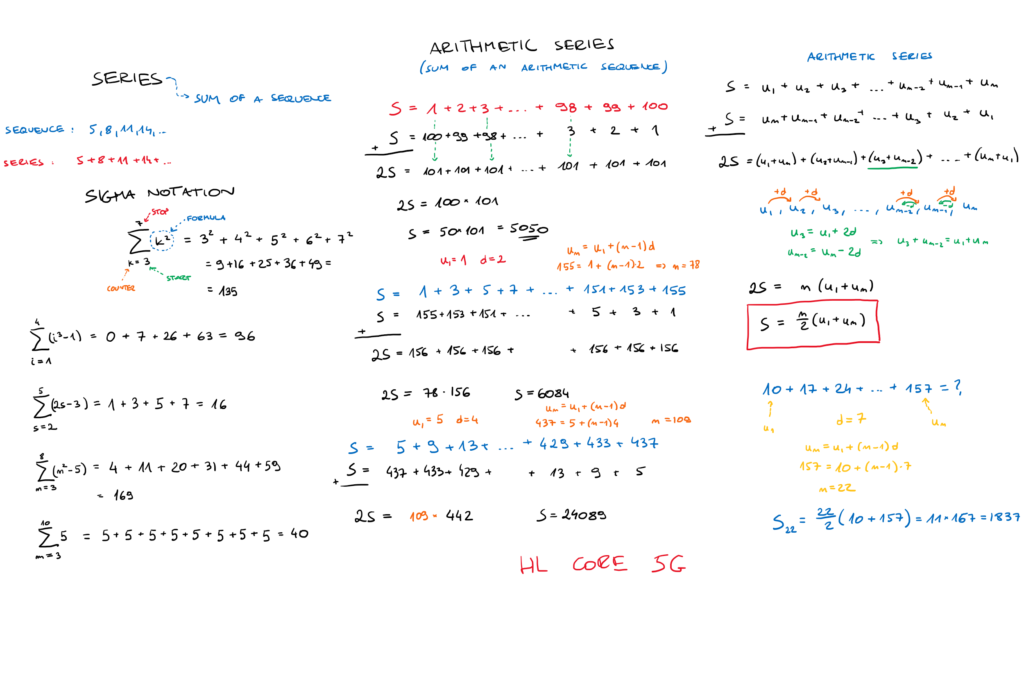 SERIES
SUM OF A SEQUENCE
SEQUENCE : 5, 8, 11, 14, ..
SERIES : 5 + 8 + 11 + 14 + ..
SIGMA NOTATION
STOP
FORMULA
7
∑ k² = 3² + 4² + 5² + 6² + 7²
k = 3
START
COUNTER
= 9 + 16 + 25 + 36 + 49 =
= 135
4
∑ (i³-1) = 0 + 7 + 26 + 63 = 96
i = 1
5
∑ (2s-3) = 1 + 3 + 5 + 7 = 16
s = 2
8
∑ (m²-5) = 4 + 11 + 20 + 31 + 44 + 59
m = 3
= 169
10
∑ 5 = 5 + 5 + 5 + 5 + 5 + 5 + 5 + 5 = 40
m = 3
ARITHMETIC SERIES
(SUM OF AN ARITHMETIC SEQUENCE)
S = 1 + 2 + 3 + ... + 98 + 99 + 100
+ S = 100 + 99 + 98 + ... + 3 + 2 + 1
2S = 101 + 101 + 101 + ... + 101 + 101 + 101
2S = 100 · 101
S = 50 · 101 = 5050
u₁ = 1 d = 2
uₙ = u₁ + (n-1)d
155 = 1 + (n-1)2 => n = 78
S = 1 + 3 + 5 + 7 + ... + 151 + 153 + 155
+ S = 155 + 153 + 151 + ... + 5 + 3 + 1
2S = 156 + 156 + 156 + + 156 + 156 + 156
2S = 78 · 156 S = 6084
u₁ = 5 d = 4
uₙ = u₁ + (n-1)d
437 = 5 + (n-1)4 n = 109
S = 5 + 9 + 13 + ... + 429 + 433 + 437
+ S = 437 + 433 + 429 + + 13 + 9 + 5
2S = 109 · 442 S = 24089
HL CORE 5G
ARITHMETIC SERIES
S = u₁ + u₂ + u₃ + ... + uₙ₋₂ + uₙ₋₁ + uₙ
+ S = uₙ + uₙ₋₁ + uₙ₋₂ + ... + u₃ + u₂ + u₁
2S = (u₁+uₙ) + (u₂+uₙ₋₁) + (u₃+uₙ₋₂) + ... + (uₙ+u₁)
+d +d +d +d
u₁, u₂, u₃, ..., uₙ₋₂, uₙ₋₁, uₙ
u₃ = u₁ + 2d
uₙ₋₂ = uₙ - 2d => u₃ + uₙ₋₂ = u₁ + uₙ
2S = n (u₁ + uₙ)
S = n/2 (u₁ + uₙ)
10 + 17 + 24 + ... + 157 = ?
u₁ d = 7 uₙ
uₙ = u₁ + (n-1)d
157 = 10 + (n-1)·7
n = 22
S₂₂ = 22/2 (10 + 157) = 11 · 167 = 1837